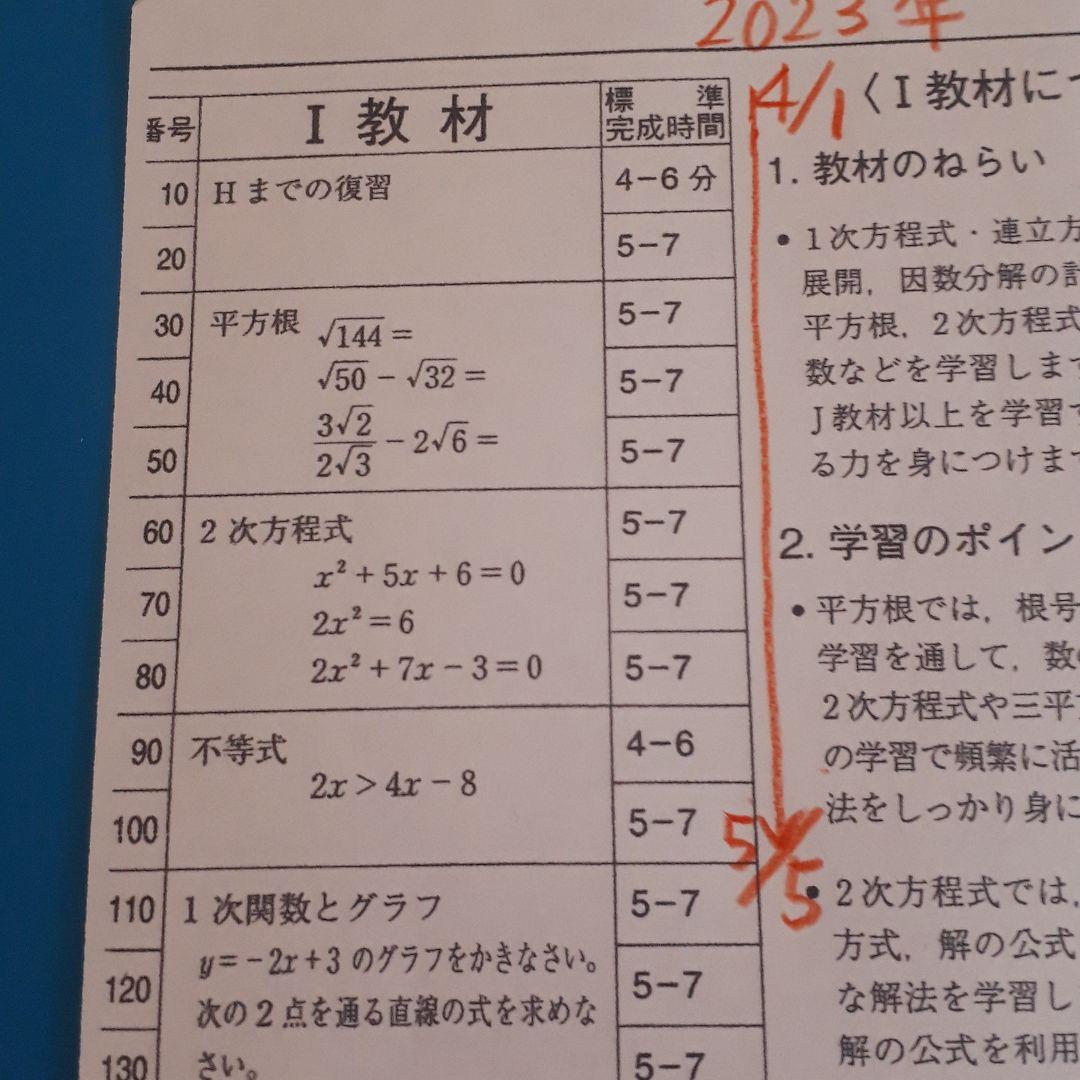 2023年
番号 I 教材 標準完成時間
10 Hまでの復習 4-6分
20 5-7
30 平方根 √144 = 5-7
40 √50 − √32 = 5-7
50 3√2/2√3 − 2√6 = 5-7
60 2次方程式 5-7
x² + 5x + 6 = 0
70 2x² = 6 5-7
80 2x² + 7x − 3 = 0 5-7
90 不等式 4-6
2x > 4x − 8
100 5-7
110 1次関数とグラフ 5-7
y = −2x + 3 のグラフをかきなさい。
120 次の2点を通る直線の式を求めな 5-7
130 さい。 5-7
4/1
5/5
〈I教材に
1. 教材のねらい
• 1次方程式・連立方
展開，因数分解の
平方根，2次方程式
数などを学習しま
J教材以上を学習
る力を身につけま
2. 学習のポイン
• 平方根では，根号
学習を通して，数
2次方程式や三平
の学習で頻繁に活
法をしっかり身に
• 2次方程式では，
方式，解の公式
な解法を学習し
解の公式を利用